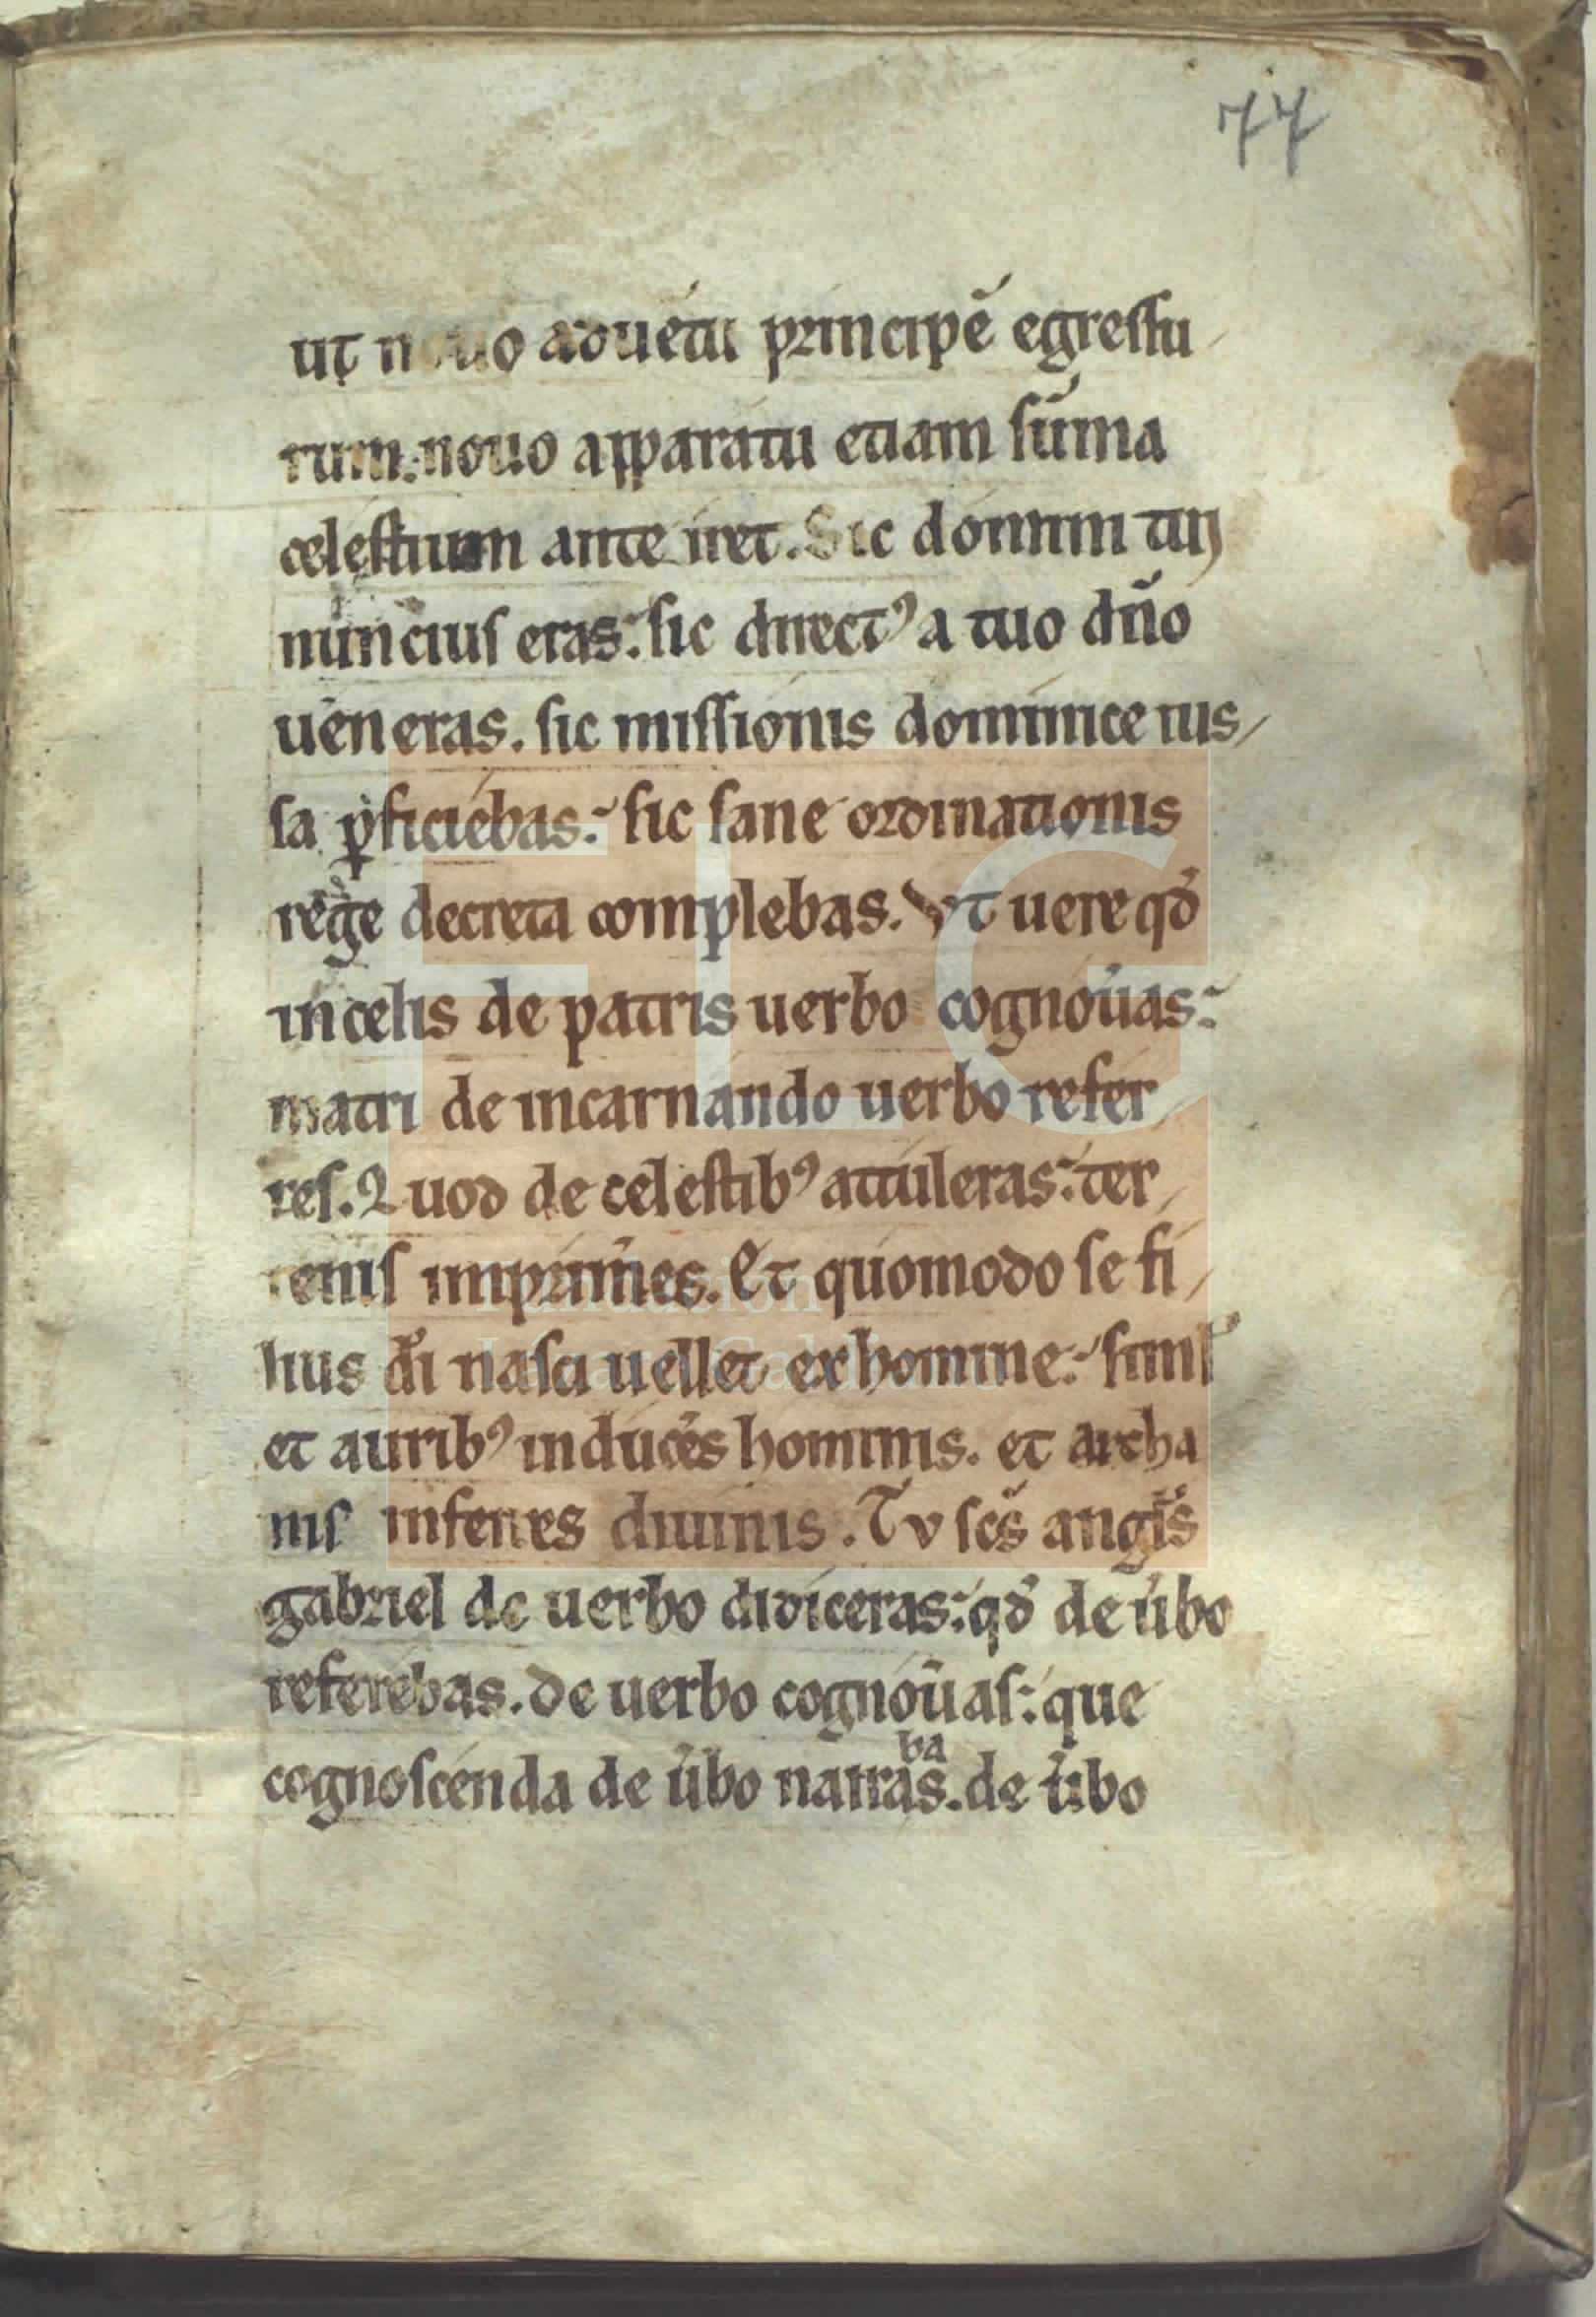 77
ut nouo aduētu principē egressu
rum: nouo apparatu etiam sūma
celestium ante iret. Sic domini tui
nuncius eras: sic directꝰ a tuo dño
ueneras. sic missionis dominice ius
sa ꝑficiebas: sic sane ordinationis
regie decreta complebas. Vt uere qđ
in celis de patris uerbo cognoũas:
matri de incarnando uerbo refer
res. Quod de celestibꝰ attuleras: ter
renis imprim̃es. Et quomodo se fi
lius di nasci uellet ex homine: siml
et auribꝰ induc̃es hominis. et archa
nis inferres diuinis. Tu scs̄ angls̄
gabriel de uerbo didiceras: qđ de ũbo
referebas. de uerbo cognoũas: que
cognoscenda de ũbo narrabas. de ũbo